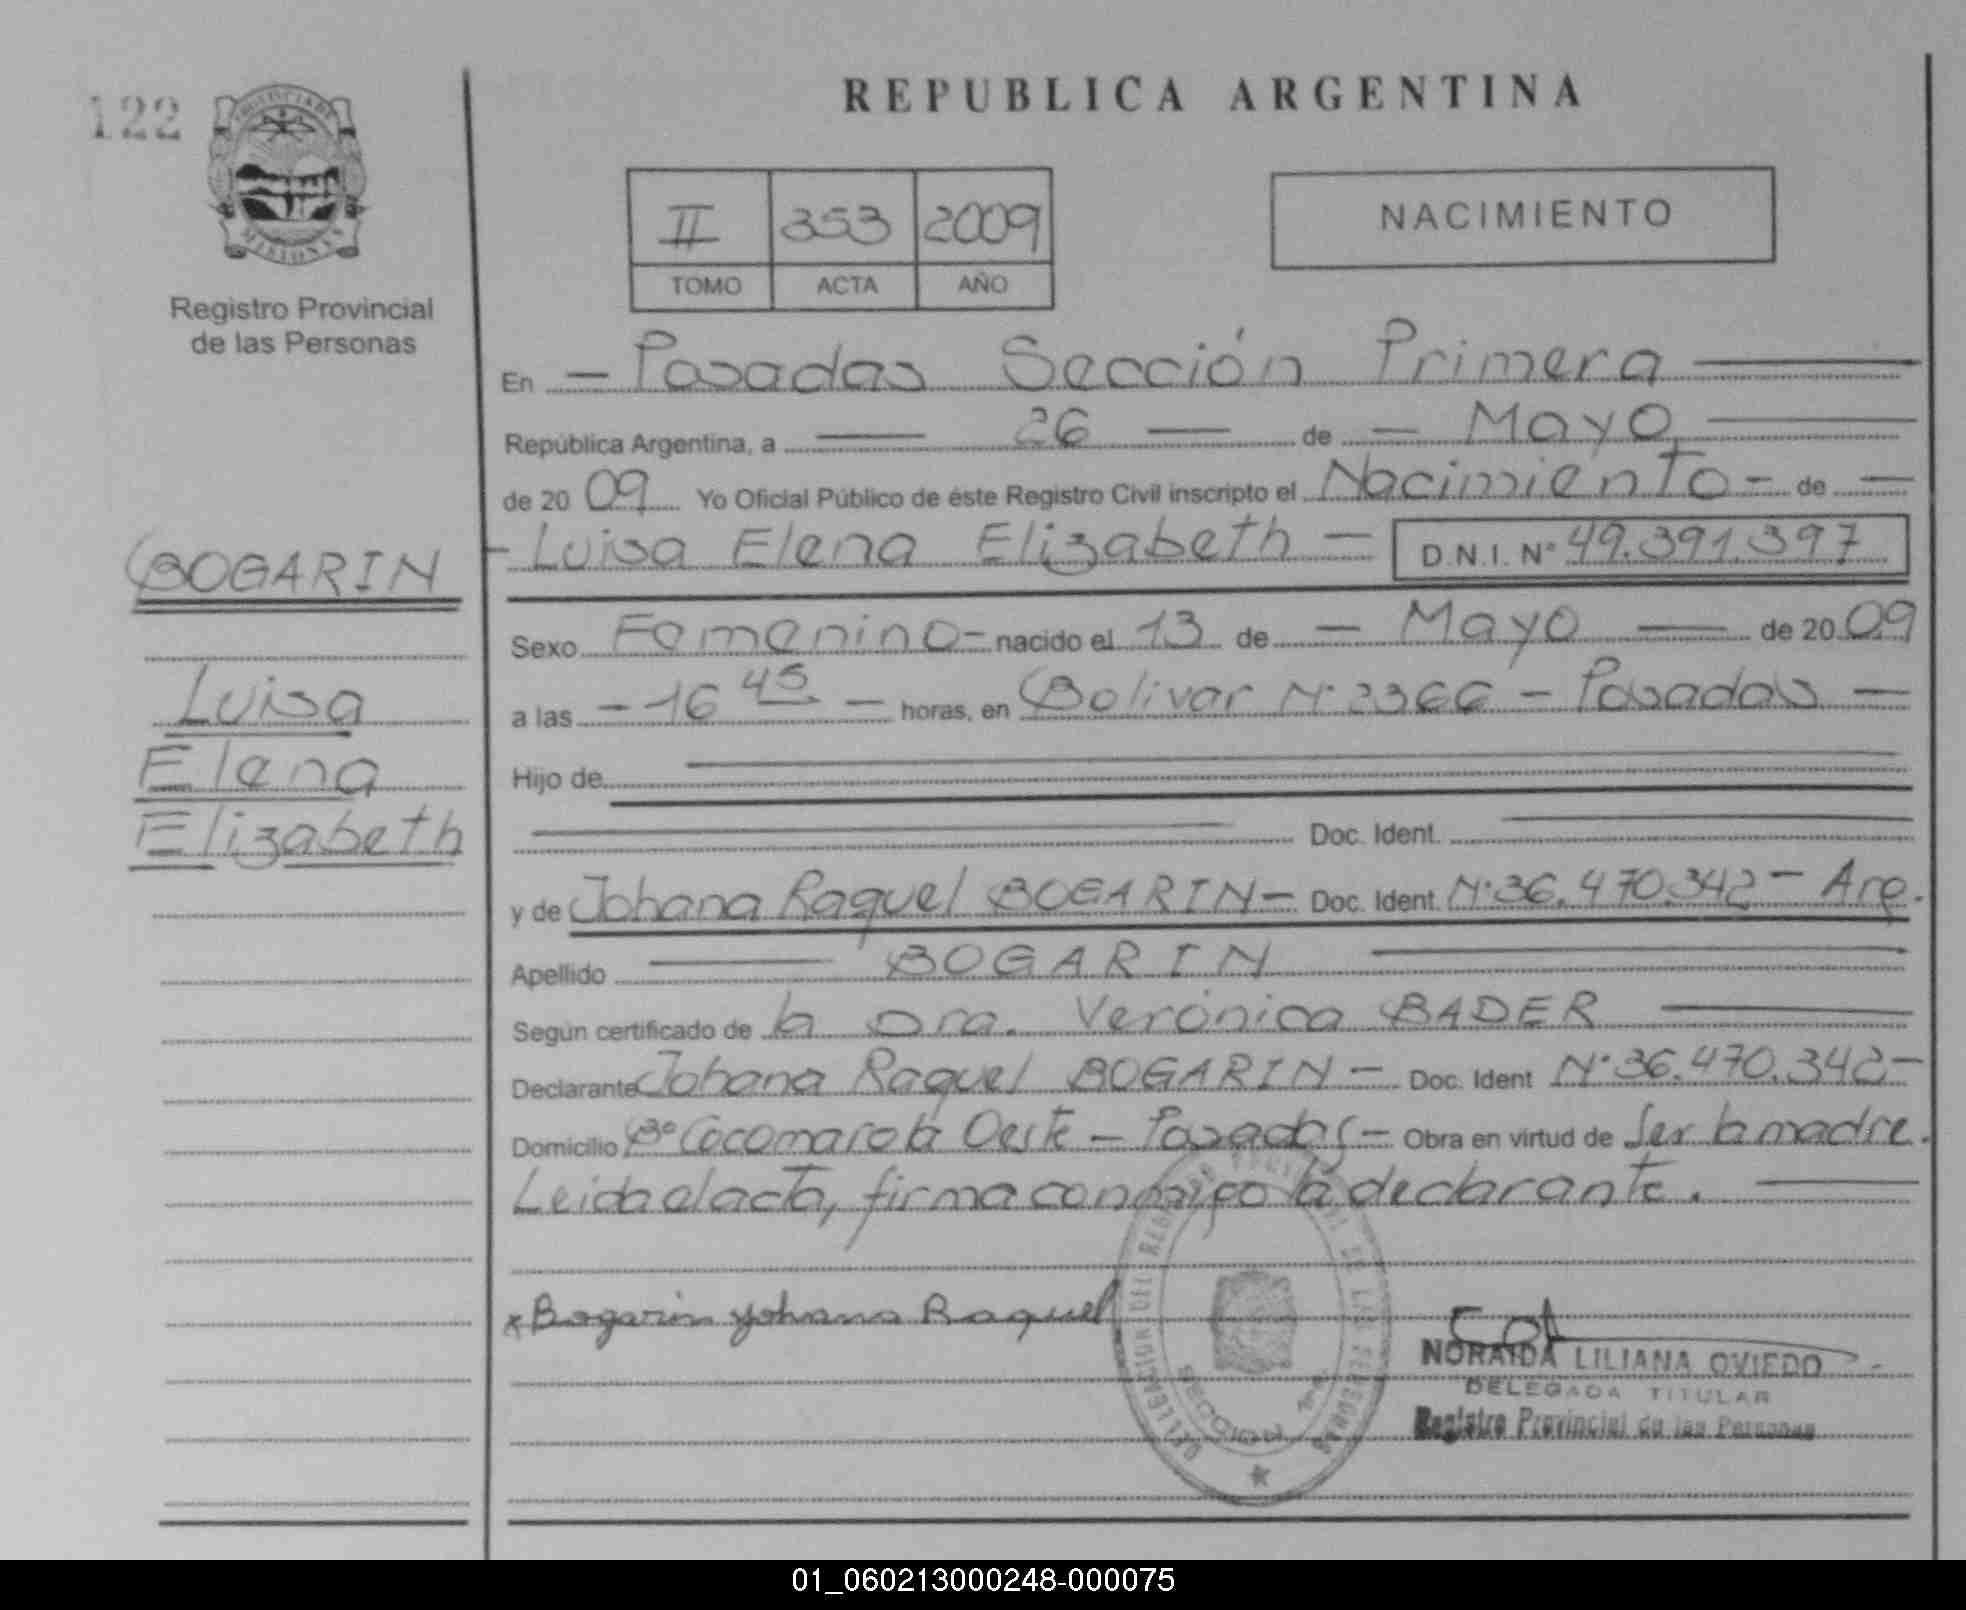 122
PROVINCIA DE
MISIONES
Registro Provincial
de las Personas
BOGARIN
Luisa
Elena
Elizabeth
REPUBLICA ARGENTINA
II 353 2009
TOMO ACTA AÑO
NACIMIENTO
En - Posadas Sección Primera
República Argentina, a 26 de - Mayo
de 20 09 Yo Oficial Público de éste Registro Civil inscripto el Nacimiento - de -
- Luisa Elena Elizabeth - D.N.I. N° 49.391.397
Sexo Femenino - nacido el 13 de - Mayo - de 20 09
a las - 16 45 - horas, en Bolivar N° 2366 - Posadas -
Hijo de
Doc. Ident.
y de Johana Raquel BOGARIN - Doc. Ident. N° 36.470.342 - Arg.
Apellido BOGARIN
Según certificado de la Dra. Verónica BADER
Declarante Johana Raquel BOGARIN - Doc. Ident N° 36.470.342 -
Domicilio B° Cocomarola Oeste - Posadas - Obra en virtud de Ser la madre.
Leida el acta, firma conmigo la declarante.
x Bogarin Yohana Raquel
DELEGACION DEL REGISTRO PROVINCIAL DE LAS PERSONAS
SECCION 1ra
NORAIDA LILIANA OVIEDO
DELEGADA TITULAR
Registro Provincial de las Personas
01_060213000248-000075